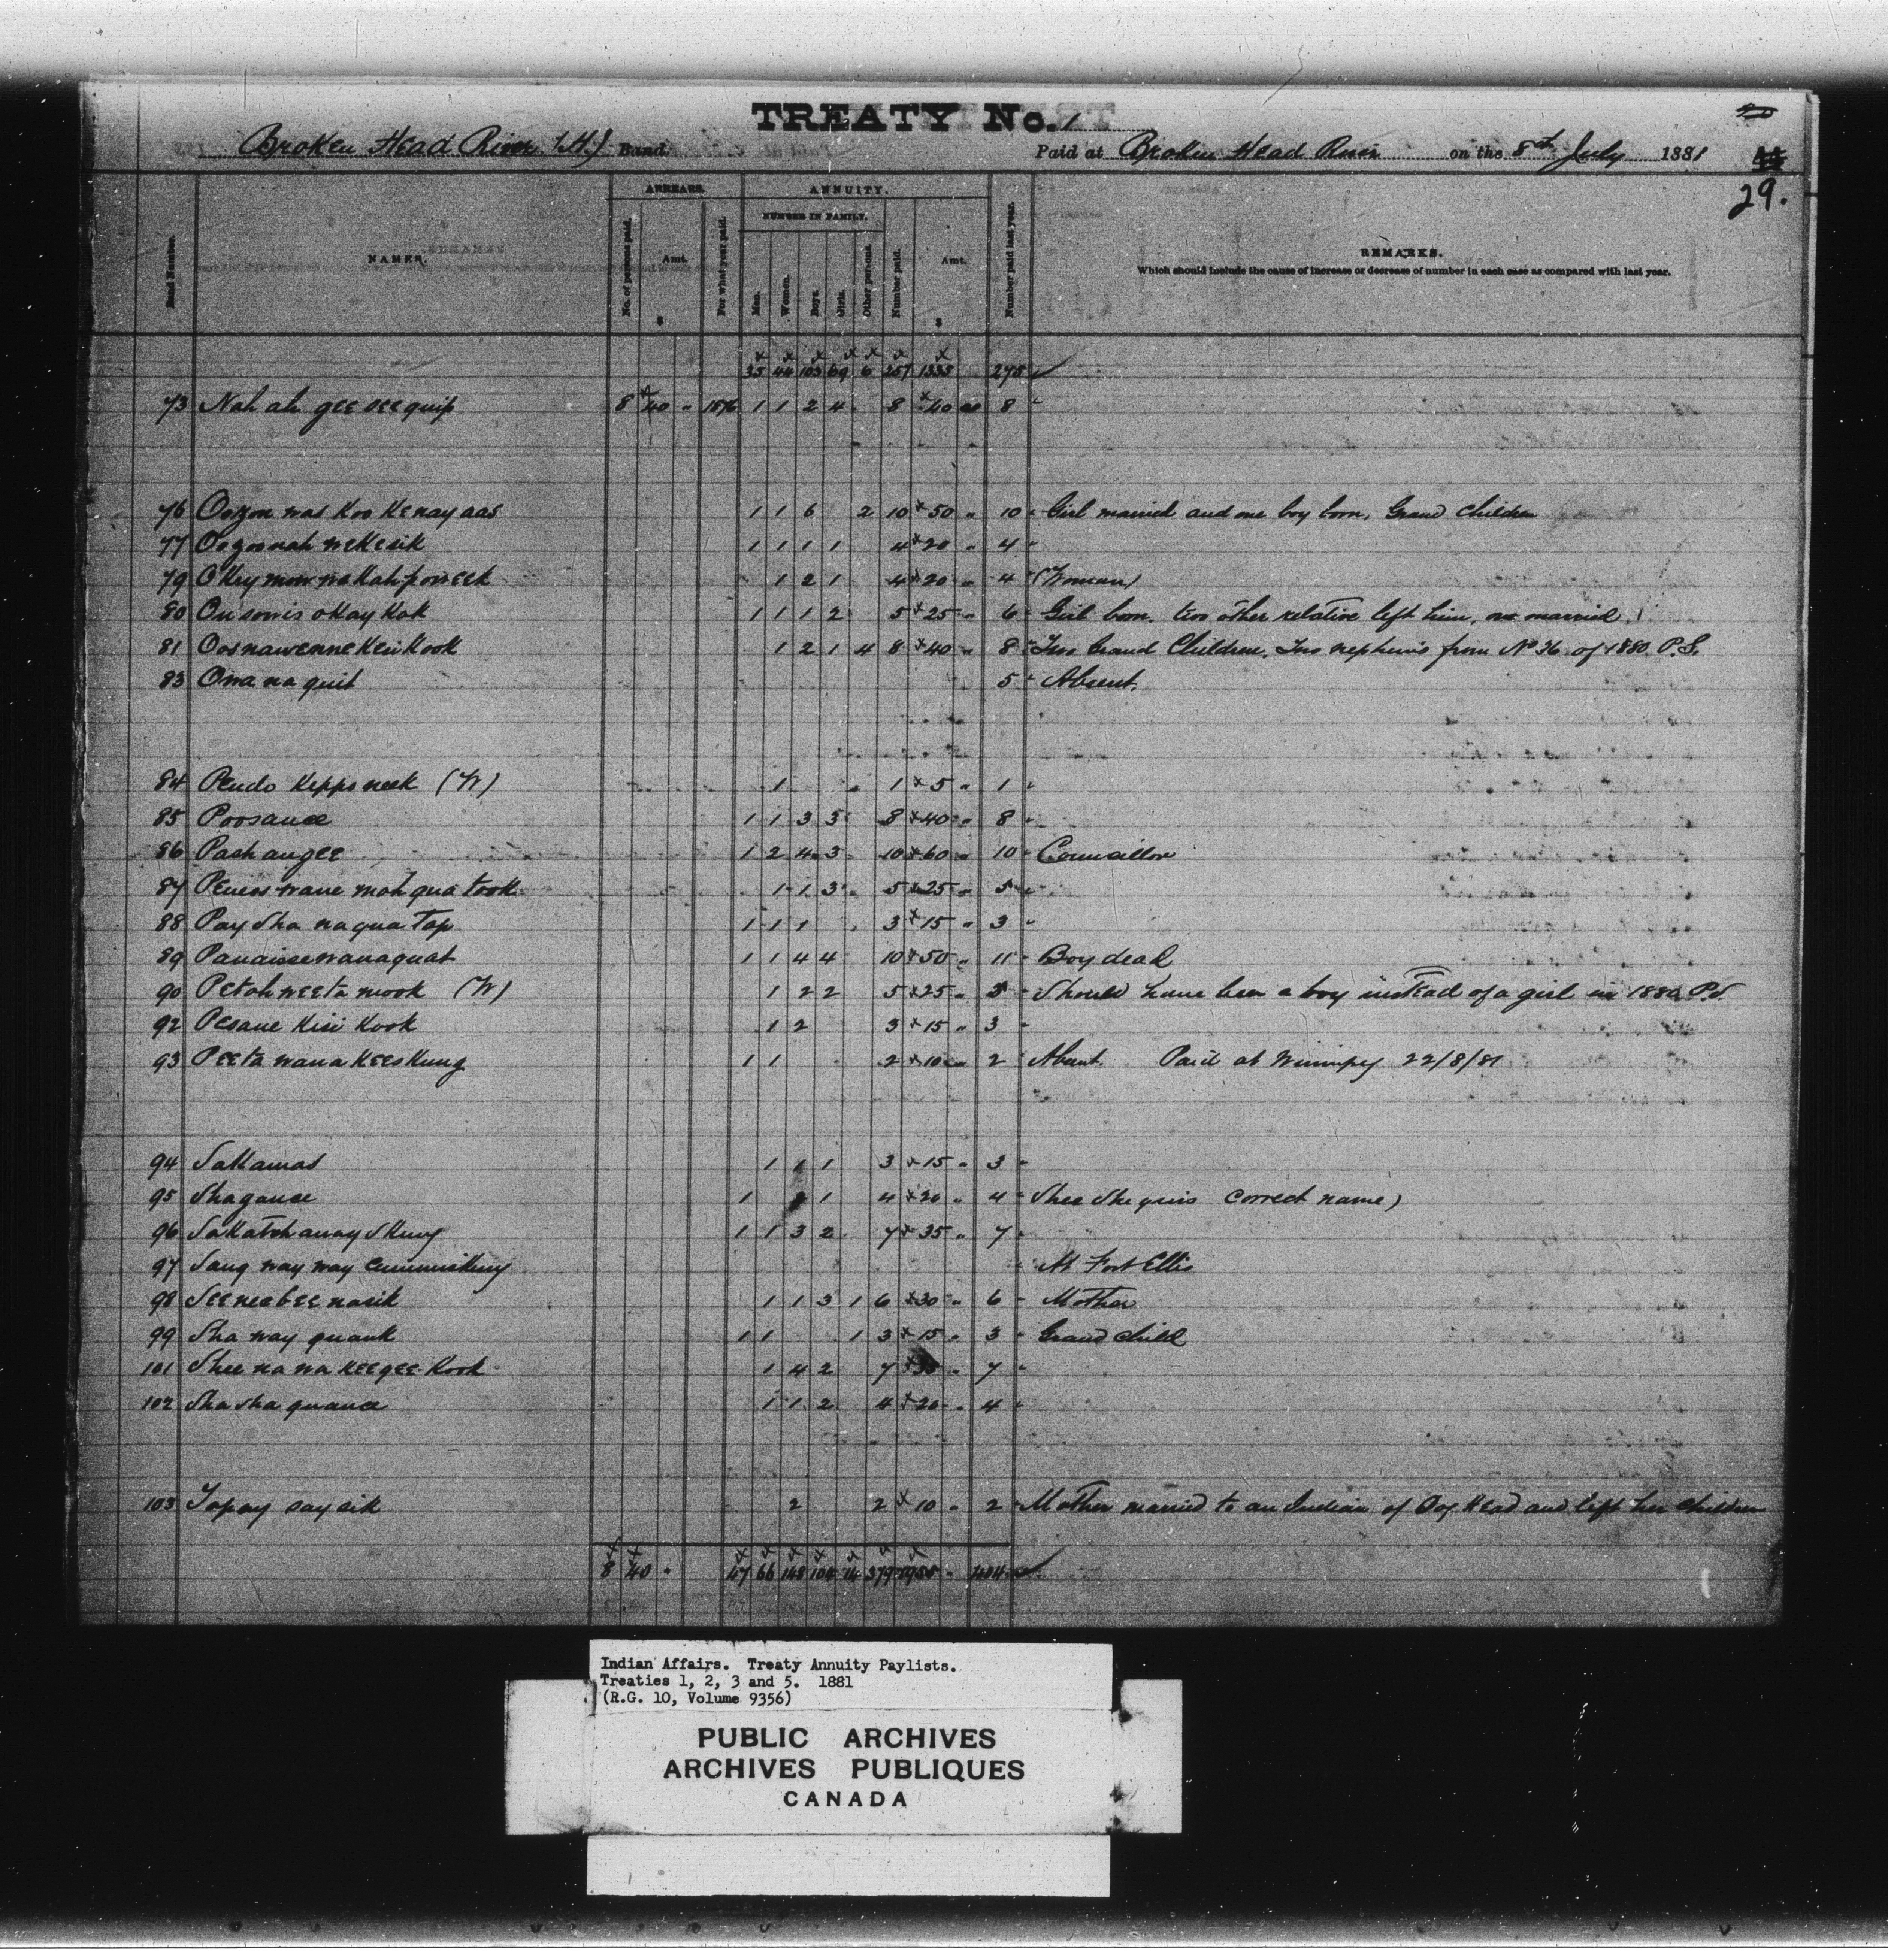 TREATY No. 1
Broken Head River (H) Band. Paid at Broken Head River on the 8th July 1881
29.
Band Number. NAMES. ARREARS. No. of persons paid. Amt. $ For what year paid. ANNUITY. NUMBER IN FAMILY. Men. Women. Boys. Girls. Other persons. Number paid. Amt. $ Number paid last year. REMARKS.
Which should include the cause of increase or decrease of number in each case as compared with last year.
35 44 103 69 6 257 1335 278
73 Nah ah gee see quip 8 40 " 1876 1 1 2 4 8 40 00 8 "
76 Oozou was koo kenay aas 1 1 6 2 10 50 " 10 " Girl married and one boy born, Grand Children
77 Oogoonah wekesik 1 1 1 1 4 20 " 4 "
79 Okey mow wakah poweek 1 2 1 4 20 " 4 " (Woman)
80 On sowis okay kak 1 1 1 2 5 25 " 6 " Girl born. two other relative left him, one married
81 Oosnawennekeukook 1 2 1 4 8 40 " 8 " Two Grand Children. Two nephews from No 36 of 1880 P.S.
83 Owa na quit 5 " Absent.
84 Pendo keppo neek (W) 1 1 5 " 1 "
85 Poosance 1 1 3 3 8 40 " 8 "
86 Pashangee 1 2 4 3 10 60 " 10 " Councillor
87 Peness wane moh qua took 1 1 3 5 25 " 5 "
88 Pay sha naqua tap 1 1 1 3 15 " 3 "
89 Panaissewanaquat 1 1 4 4 10 50 " 11 " Boy dead
90 Petahweeta mook (W) 1 2 2 5 25 " 5 " Should have been a boy instead of a girl in 1880 P.S.
92 Pesane kisi kook 1 2 3 15 " 3 "
93 Peeta wana keeskung 1 1 2 10 " 2 Absent. Paid at Winnipeg 22/8/81
94 Sakamas 1 1 1 3 15 " 3 "
95 Shagance 1 1 4 20 " 4 " Shee She quis correct name)
96 Sakatchaway Skung 1 1 3 2 7 35 " 7 "
97 Saug way way cummiskung At Fort Ellis
98 Seeneebee nasik 1 1 3 1 6 30 " 6 " Mother
99 Sha way quank 1 1 1 3 15 " 3 " Grand child
101 Shee na wa keegee kook 1 4 2 7 35 " 7 "
102 Sha sha quance 1 1 2 4 20 " 4 "
103 Tapay say sik 2 2 10 " 2 " Mother married to an Indian of Dog Head and left her children
8 40 " 47 66 148 104 14 379 1955 " 404
Indian Affairs. Treaty Annuity Paylists.
Treaties 1, 2, 3 and 5. 1881
(R.G. 10, Volume 9356)
PUBLIC ARCHIVES
ARCHIVES PUBLIQUES
CANADA